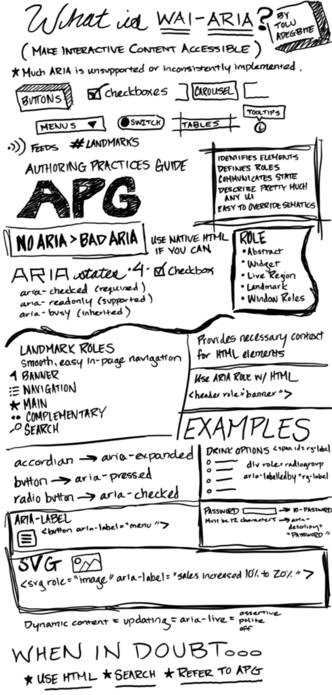 What is WAI-ARIA?
BY TOLU ADEGBITE
(MAKE INTERACTIVE CONTENT ACCESSIBLE)
★ Much ARIA is unsupported or inconsistently implemented.
BUTTONS
checkboxes
CAROUSEL
MENUS
SWITCH
TABLES
TOOLTIPS
FEEDS
#LANDMARKS
AUTHORING PRACTICES GUIDE
APG
IDENTIFIES ELEMENTS
DEFINES ROLES
COMMUNICATES STATE
DESCRIBE PRETTY MUCH
ANY UI
EASY TO OVERRIDE SEMATICS
NO ARIA > BAD ARIA
USE NATIVE HTML
IF YOU CAN
ROLE
• Abstract
• Widget
• Live Region
• Landmark
• Window Roles
ARIA states ·4· Checkbox
aria-checked (required)
aria-readonly (supported)
aria-busy (inherited)
LANDMARK ROLES
Smooth, easy in-page navigation
BANNER
NAVIGATION
★ MAIN
COMPLEMENTARY
SEARCH
Provides necessary context
for HTML elements
Use ARIA ROLE w/ HTML
<header role="banner">
EXAMPLES
accordian → aria-expanded
button → aria-pressed
radio button → aria-checked
DRINK OPTIONS <span id=rg-label
div role=radiogroup
aria-labelledby="rg-label
ARIA-LABEL
<button aria-label="menu">
PASSWORD → ID=PASSWORD
Must be 12 characters → aria-
"PASSWORD"
SVG
<svg role="image" aria-label="sales increased 10% to 20%">
Dynamic content = updating = aria-live = assertive
polite
off
WHEN IN DOUBT...
★ USE HTML ★ SEARCH ★ REFER TO APG